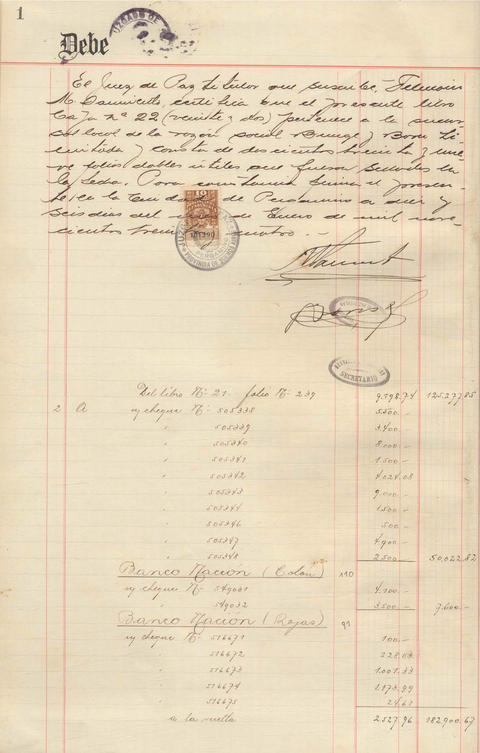 1
Debe
El Juez de Paz titular que suscribe, Filemón
M. certifica que el presente libro
Caja nº 22 (veinte y dos) pertenece a la sucur
sal local de la razón social Bunge y Born Li
mitada y consta de doscientos treinta y nue
ve folios dobles útiles que fueron sellados en
la fecha. Para constancia firma el presen
te en la Ciudad de Pergamino a diez y
seis días del mes de Enero de mil nove
cientos treinta y cuatro.-
SECRETARIO
Del libro Nº 21. folio Nº 239 9.398.74 125.277.85
2 A n/ cheque Nº 505338 5.500.-
" 505339 3.400.-
" 505340 8.000.-
" 505341 1.500.-
" 505342 4.024.08
" 505343 9.000.-
" 505344 1.500.-
" 505346 500.-
" 505347 4.900.-
" 505348 2.500.- 50.022.82
Banco Nación (Colon) 110
n/ cheque Nº 549031 4.100.-
" 549032 3.500.- 7.600.-
Banco Nación (Rojas) 91
n/ cheque Nº 516671 100.-
" 516672 228.03
" 516673 1.001.33
" 516674 1.173.99
" 516675 24.61
a la vuelta 2.527.96 182.900.67